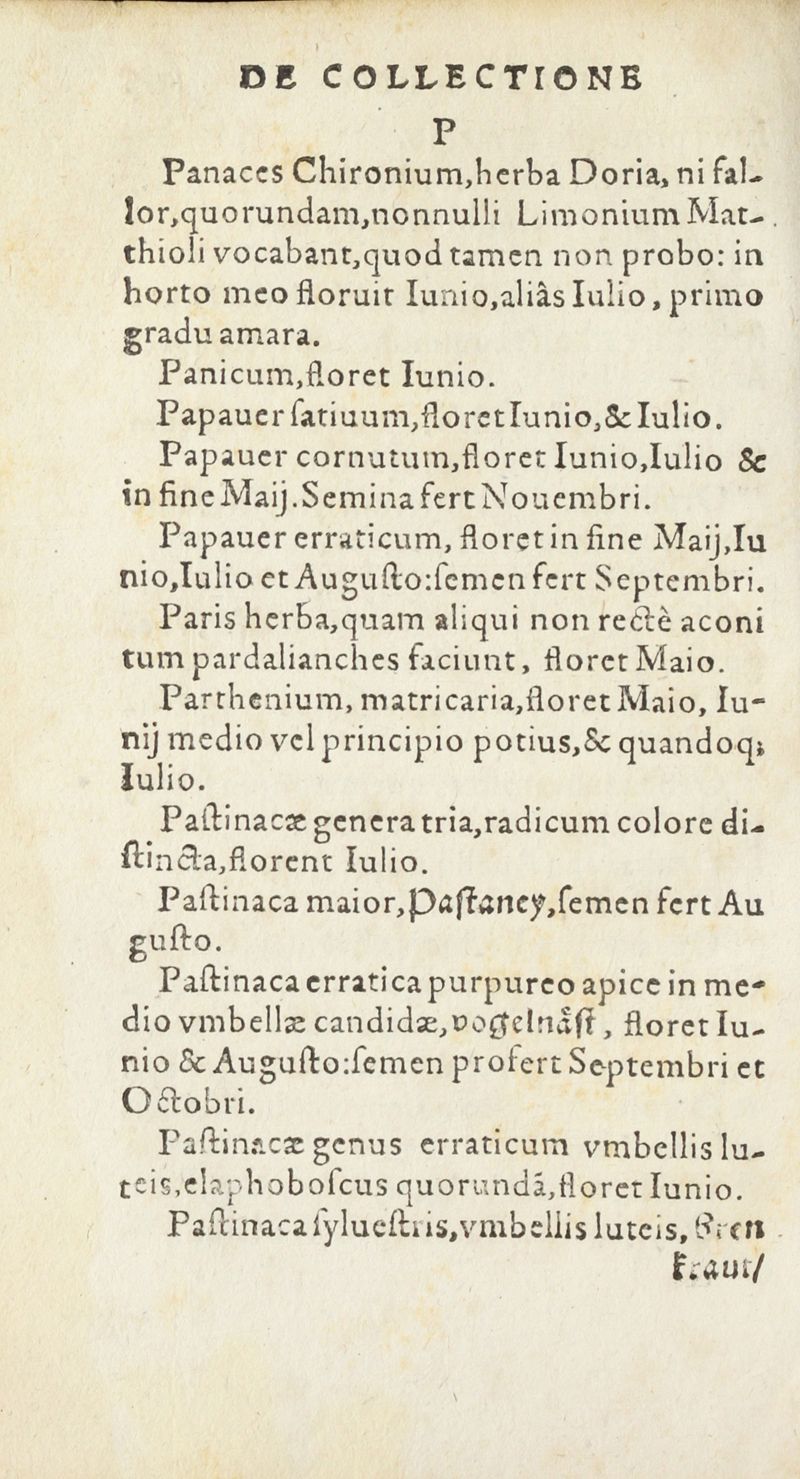 DE COLLECTIONE
P
Panaces Chironium,herba Doria, ni fal-
lor,quorundam,nonnulli Limonium Mat-
thioli vocabant,quod tamen non probo: in
horto meo floruit Iunio,aliâs Iulio, primo
gradu amara.
Panicum,floret Iunio.
Papauer ſatiuum,floret Iunio,& Iulio.
Papauer cornutum,floret Iunio,Iulio &
in fine Maij.Semina fert Nouembri.
Papauer erraticum, floret in fine Maij,Iu
nio,Iulio et Auguſto:ſemen fert Septembri.
Paris herba,quam aliqui non rectè aconi
tum pardalianches faciunt, floret Maio.
Parthenium, matricaria,floret Maio, Iu-
nij medio vel principio potius,& quandoq;
Iulio.
Paſtinacæ genera tria,radicum colore di-
ſtincta,florent Iulio.
Paſtinaca maior,Paſtaney,ſemen fert Au
guſto.
Paſtinaca erratica purpureo apice in me-
dio vmbellæ candidæ,vogelnäſt, floret Iu-
nio & Auguſto:ſemen profert Septembri et
Octobri.
Paſtinacæ genus erraticum vmbellis lu-
teis,elaphoboſcus quorundã,floret Iunio.
Paſtinaca ſylueſtris,vmbellis luteis,
kraut/